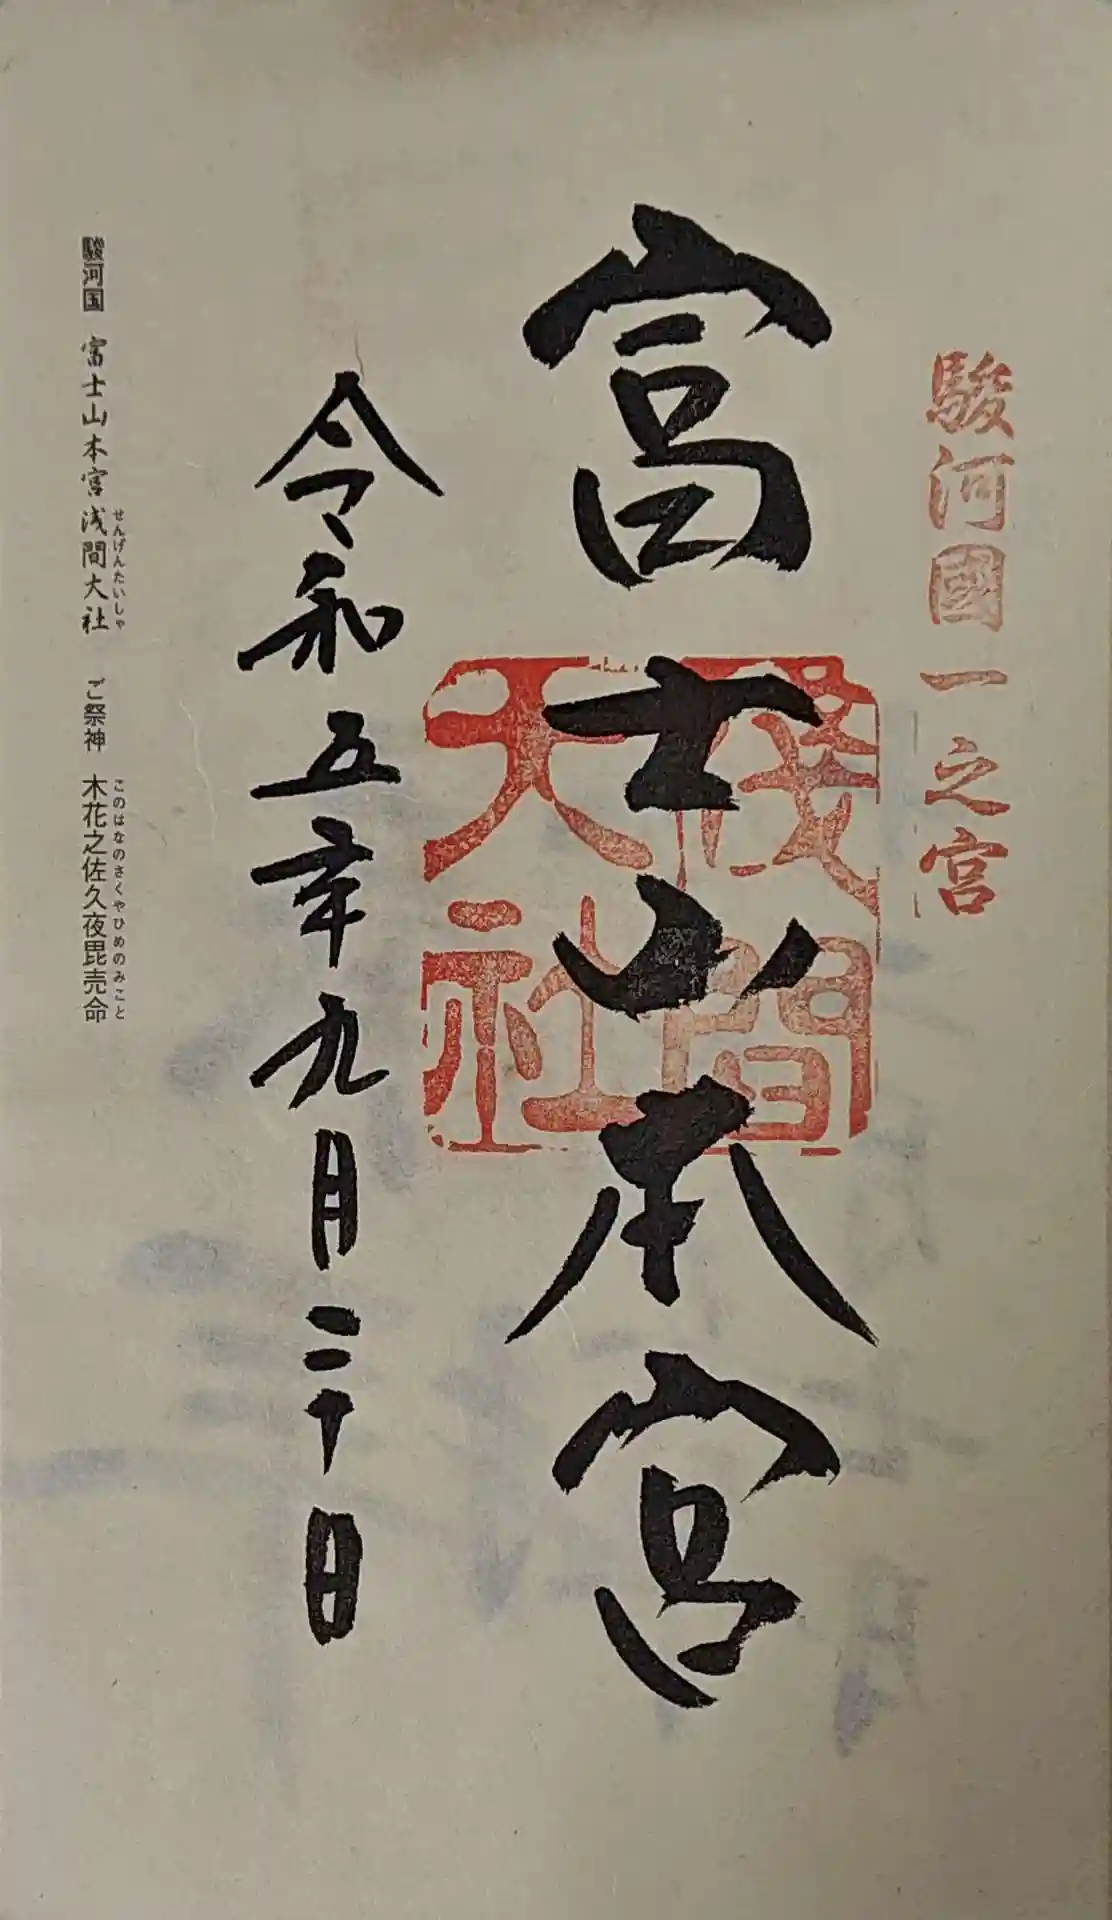 駿河國一之宮
富士山本宮
淺間大社
令和五年九月二十日
駿河国 富士山本宮浅間大社 ご祭神 木花之佐久夜毘売命
せんげんたいしゃ
このはなのさくやひめのみこと